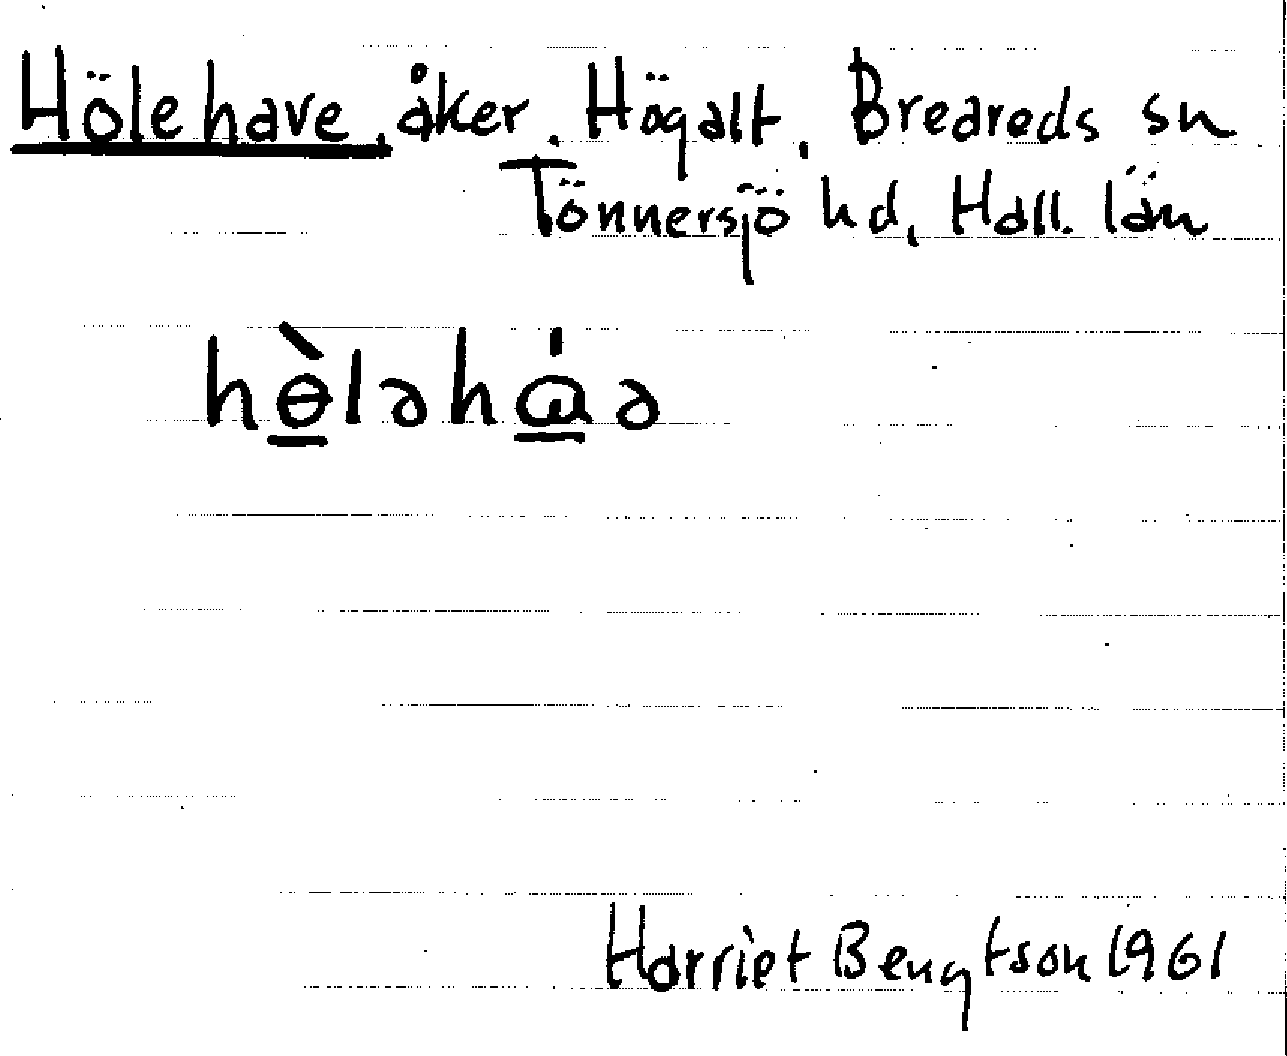 Hölehave, åker. Högalt, Breareds sn
Tönnersjö hd, Hall. län
hɵ̀ləhɑ́ə
Harriet Bengtson 1961